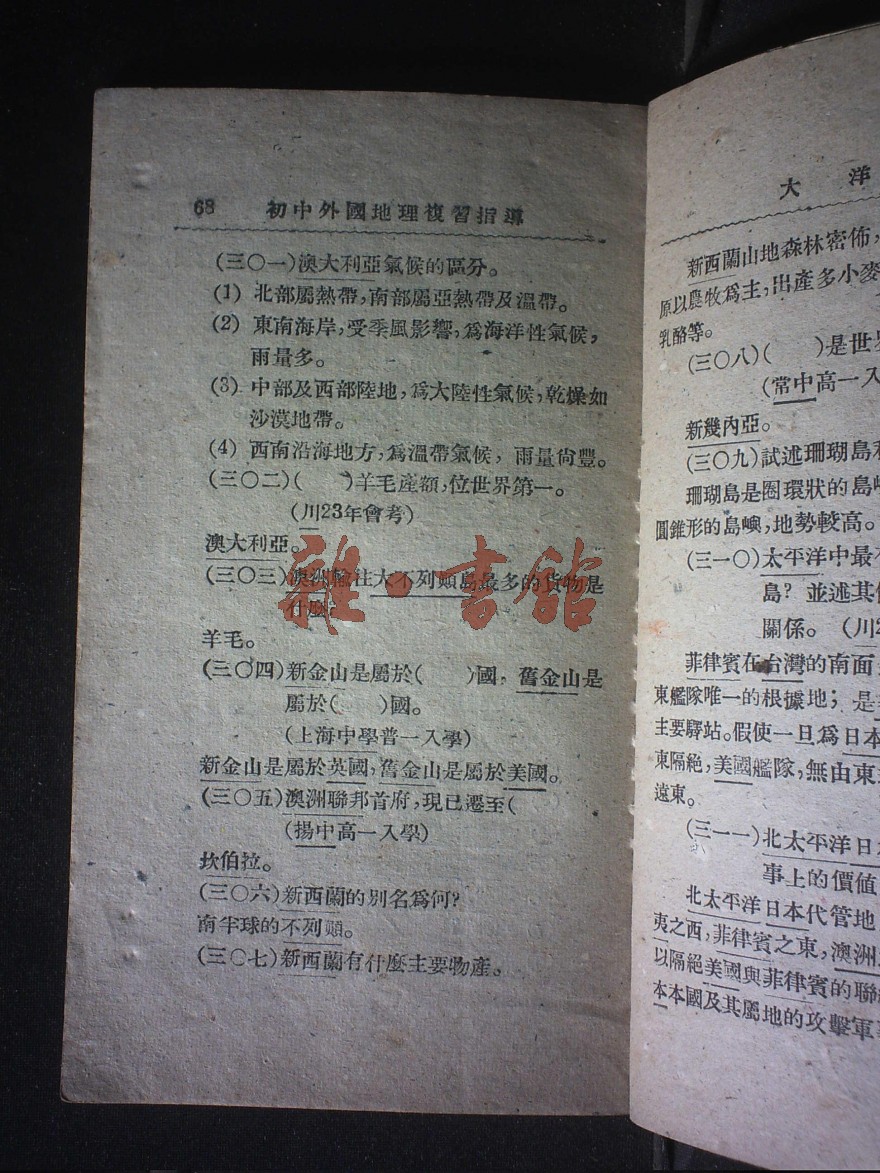 68 初中外國地理複習指導
(三〇一)澳大利亞氣候的區分。
(1) 北部屬熱帶,南部屬亞熱帶及溫帶。
(2) 東南海岸,受季風影響,爲海洋性氣候,
雨量多。
(3) 中部及西部陸地,爲大陸性氣候,乾燥如
沙漠地帶。
(4) 西南沿海地方,爲溫帶氣候,雨量尙豐。
(三〇二)( )羊毛產額,位世界第一。
(川23年會考)
澳大利亞。
(三〇三)澳洲輸往大不列顛島最多的貨物是
什麼?
羊毛。
(三〇四)新金山是屬於( )國,舊金山是
屬於( )國。
(上海中學普一入學)
新金山是屬於英國,舊金山是屬於美國。
(三〇五)澳洲聯邦首府,現已遷至(
(揚中高一入學)
坎伯拉。
(三〇六)新西蘭的別名爲何?
南半球的不列顛。
(三〇七)新西蘭有什麼主要物產。
雜·書館
大洋
新西蘭山地森林密佈,
原以農牧爲主,出產多小麥
乳酪等。
(三〇八)( )是世界
(常中高一入
新幾內亞。
(三〇九)試述珊瑚島
珊瑚島是圈環狀的島嶼
圓錐形的島嶼,地勢較高。
(三一〇)太平洋中最
島?並述其
關係。(川2
菲律賓在台灣的南面
東艦隊唯一的根據地;是
主要驛站。假使一旦爲日本
東隔絕,美國艦隊,無由東
遠東。
(三一一)北太平洋日
事上的價値
北太平洋日本代管地
夷之西,菲律賓之東,澳洲
以隔絕美國與菲律賓的聯
本本國及其屬地的攻擊軍